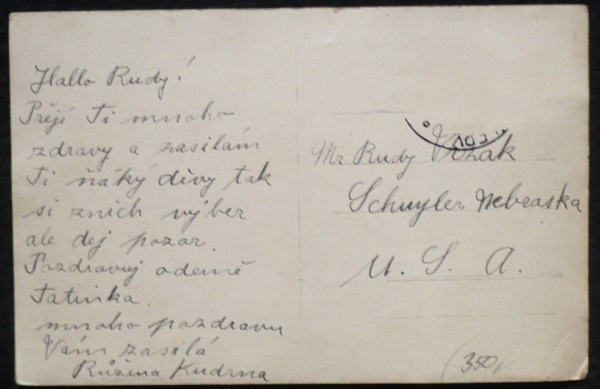 Hallo Rudy!
Přeji Ti mnoho
zdravy a zasilám
Ti ňáký divy tak
si znich výber
ale dej pozor.
Pozdravuj odemě
Tatinka.
mnoho pozdravu
Vám zasilá
Růžena Kudrna
Mr Rudy
Schuyler Nebraska
U. S. A.
350